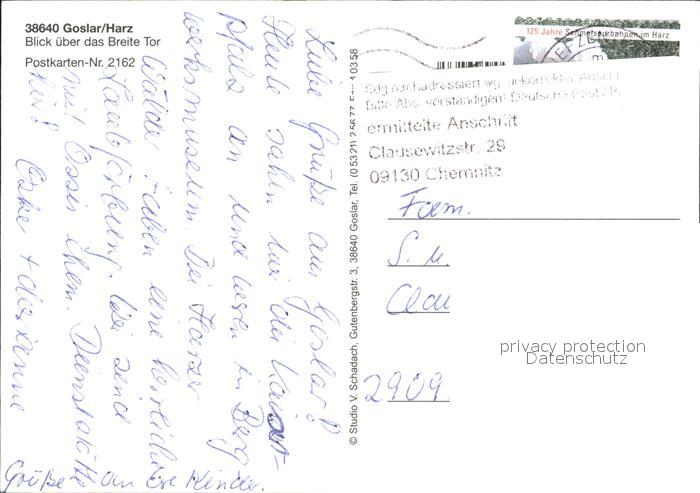 38640 Goslar/Harz
Blick über das Breite Tor
Postkarten-Nr. 2162
Liebe Grüße aus Goslar!
Heute sahen wir die Kaiser-
pfalz an und waren im Berg
werksmuseum. Die Harzer
Wälder haben eine herrliche
Laubfärbung. Wir sind
mit Ossis ehem. Dienststätte
hier!
Grüße an Ere Kinder.
© Studio V. Schadach, Gutenbergstr. 3, 38640 Goslar, Tel. (0 53 21)
125 Jahre Schmalspurbahnen im Harz
Sdg nachadressiert wg. unkorrekter Anschrift
Bitte Abs. verständigen! Deutsche Post AG
ermittelte Anschrift
Clausewitzstr. 29
09130 Chemnitz
Fam.
S. u.
Clau
2909
privacy protection
Datenschutz